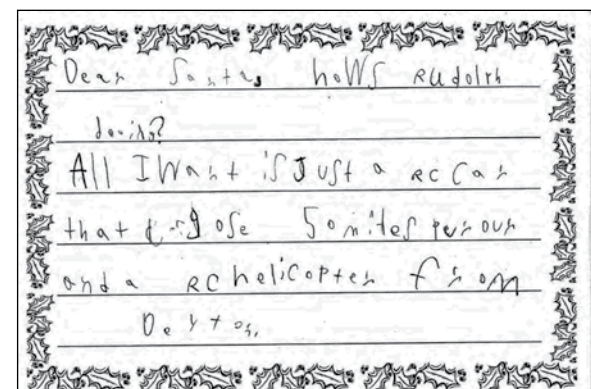 Dear Santa, hows Rudolrh
doing?
All I Want is Just a RC Car
that gose 50 miles per our
and a RC helicopter from
Deyton,